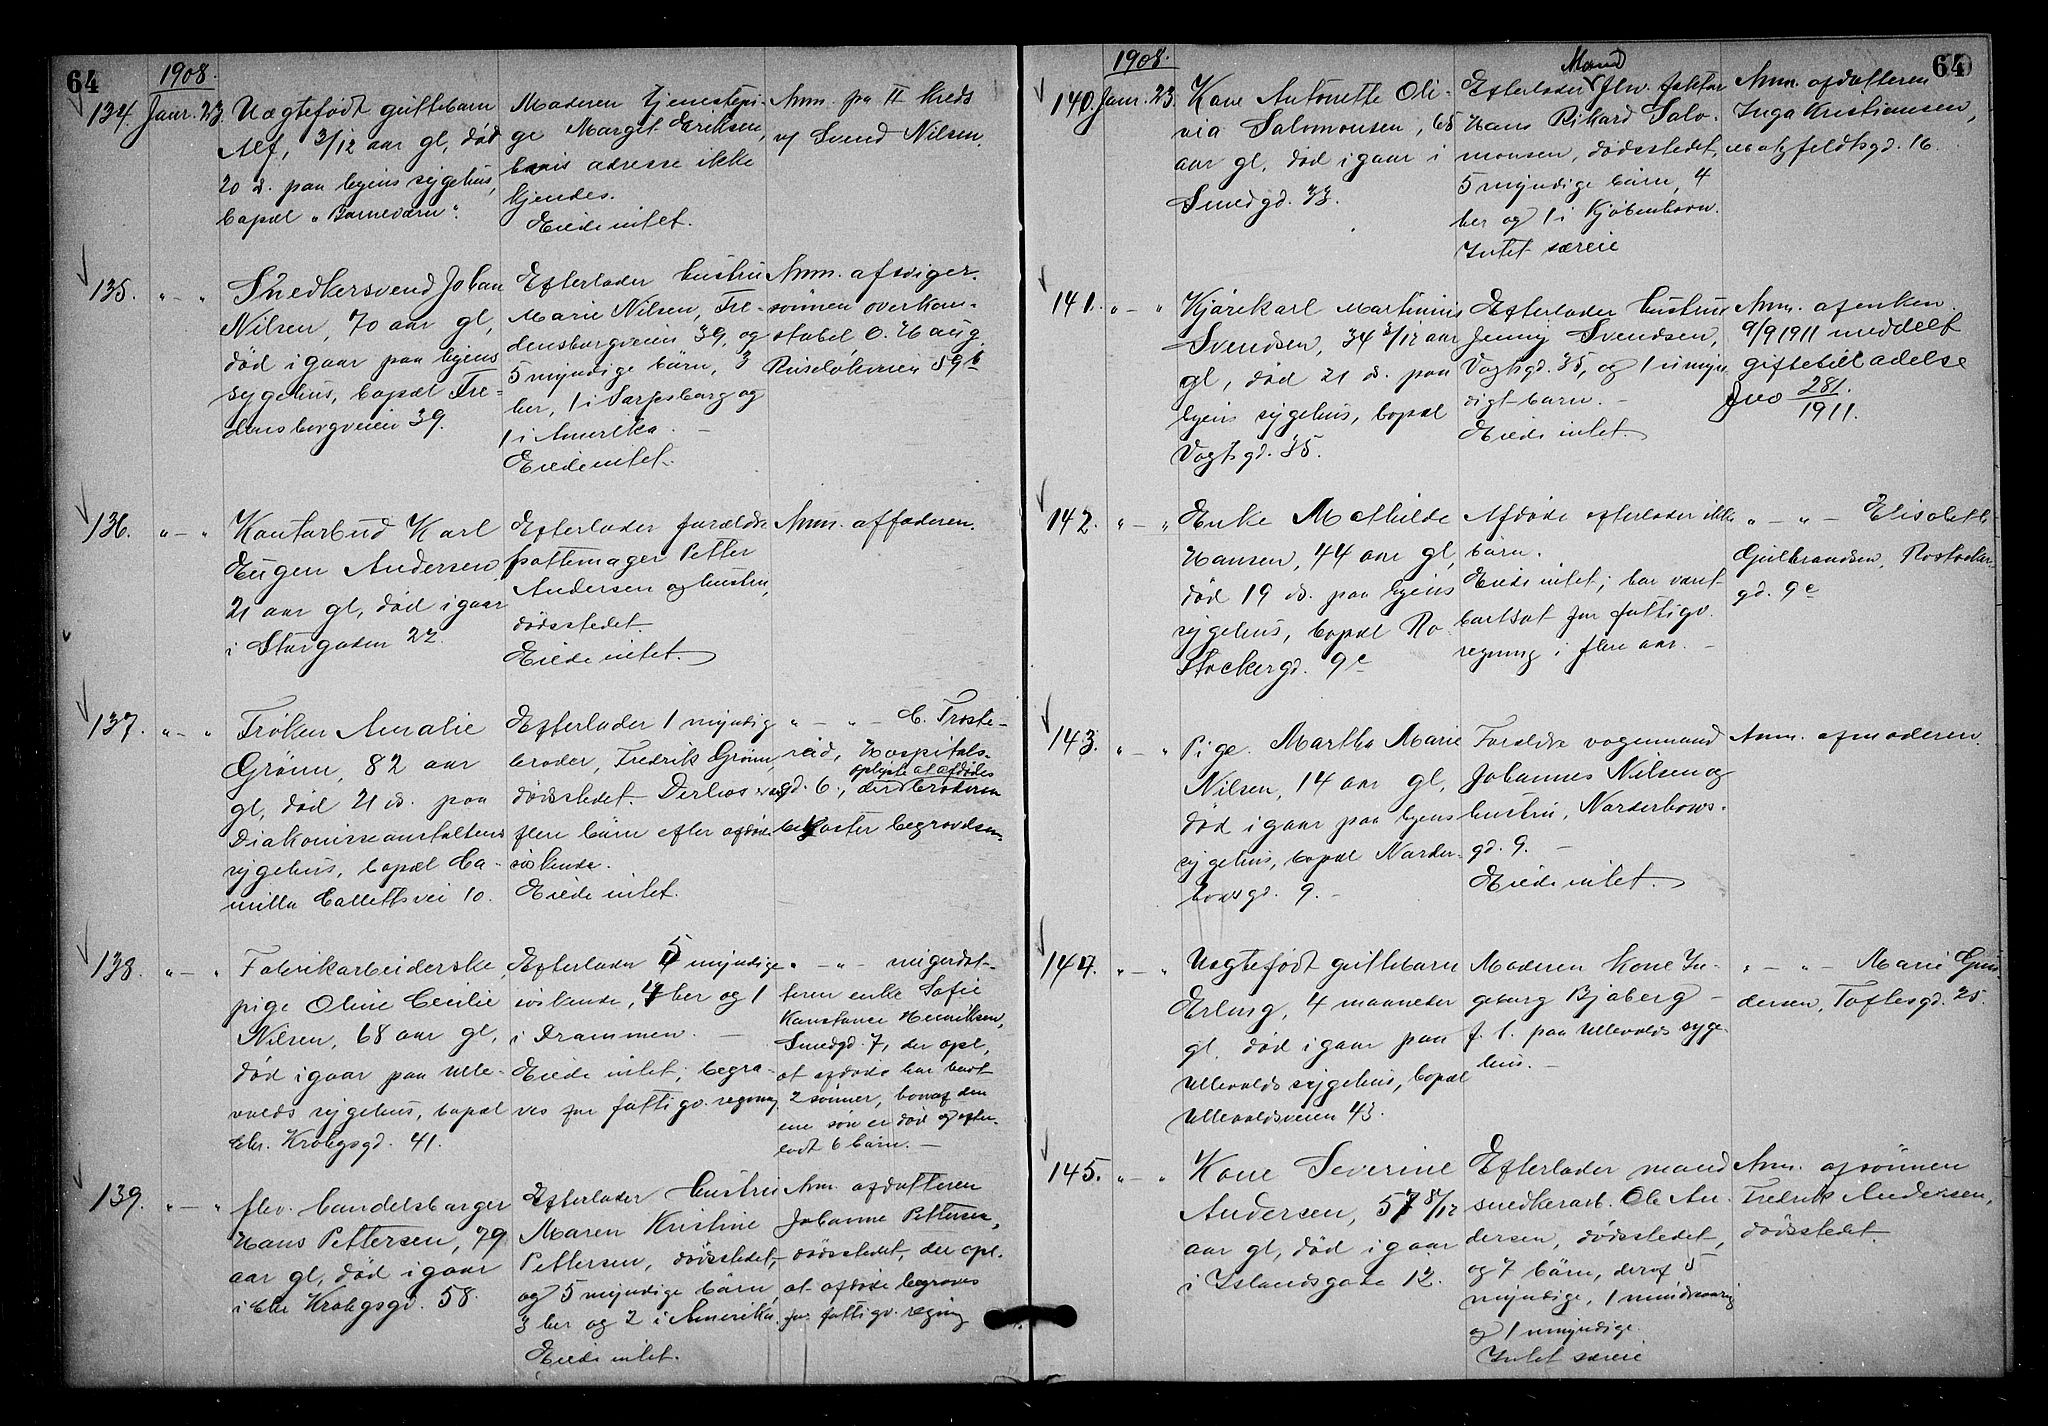 64
1908.
134. Janr. 23. Uægtefødt guttebarn
Alf, 3/12 aar gl, død
20 ds. paa byens sygehus,
bopæl "Barneværn".
Moderen tjenestepi-
ge Margit Eriksen,
hvis adresse ikke
kjendes.
Eiede intet.
Anm. paa II Kreds
v/ Svend Nilsen.
135. " - " Snedkersvend Johan
Nilsen, 70 aar gl,
død igaar paa byens
sygehus, bopæl Fre-
densborgveien 39.
Efterlader hustru
Marie Nilsen, Fre-
densborgveien 39, og
5 myndige børn, 3
her, 1 i Sarpsborg og
1 i Amerika. -
Eiede intet.
Anm. af sviger-
sønnen overkon-
stabel O. Haug,
Ruseløkveien 59 b
136. " - " Kontorbud Karl
Eugen Andersen
21 aar gl, død igaar
i Storgaden 22.
Efterlader forældre
pottemager Petter
Andersen og hustru,
dødsstedet.
Eiede intet.
Anm. af faderen.
137. " - " Frøken Amalie
Grønn, 82 aar
gl, død 21 ds. paa
Diakonisseanstaltens
sygehus, bopæl Ca-
milla Colletts vei 10.
Efterlader 1 myndig
broder, Fredrik Grønn,
dødsstedet. Derhos
flere børn efter afdøde
søskende.
Eiede intet.
" - " - C. Froste-
rud, Hospitals-
gd. 6., oplyste at afdødes
broderen
bekoster begravelsen
138. " - " Fabrikarbeiderske
pige Oline Cecilie
Nilsen, 68 aar gl,
død igaar paa Ulle-
volds sygehus, bopæl
Chr. Krohgsgd. 41.
Efterlader 5 myndige
søskende, 4 her og 1
i Drammen. -
Eiede intet, begra-
ves for fattigv. regning
" - " -
teren enke Sofie
Konstance Henriksen,
Smedgd. 7, der opl,
at afdøde har havt
2 sønner, hvoraf den
ene søn er død og efter-
ladt 6 børn. -
139. " - " flev. handelsborger
Hans Pettersen, 79
aar gl, død igaar
i Chr Krohgsgd. 58.
Efterlader hustru
Maren Kristine
Pettersen, dødsstedet,
og 5 myndige børn,
3 her og 2 i Amerika.
Eiede intet.
Anm. af datteren
Johanne Pettersen,
dødsstedet, der opl.
at afdøde begraves
for fattigv. regning
64
1908.
140. Janr. 23. Kone Antonette Oli-
via Salomonsen, 68
aar gl, død igaar i
Smedgd. 33.
Mand
Efterlader flev. faktor
Hans Rikard Salo-
monsen, dødsstedet,
5 myndige børn, 4
her og 1 i Kjøbenhavn.
Intet særeie
Anm. af datteren
Inga Kristiansen,
Motzfeldtsgd. 16.
141. " - " Kjørekarl Martinius
Svendsen, 34 3/12 aar
gl, død 21 ds. paa
byens sygehus, bopæl
Vogtsgd. 35.
Efterlader hustru
Jenny Svendsen,
Vogtsgd. 35, og 1 umyn
digt barn. -
Eiede intet.
Anm. af enken
9/9 1911 meddelt
giftetilladelse
Jno 281/1911.
142. " - " Enke Mathilde
Hansen, 44 aar gl,
død 19 ds. paa byens
sygehus, bopæl Ro-
stockergd. 9c
Afdøde efterlader ikke
børn.
Eiede intet; har været
bortsat for fattigv.
regning i flere aar. -
" - " - Elisabeth
Gulbrandsen, Rostocker-
gd. 9c
143. " - " Pige. Martha Marie
Nilsen, 14 aar gl,
død igaar paa byens
sygehus, bopæl Norder-
hovsgd. 9. -
Forældre vognmand
Johannes Nilsen og
hustru, Norderhovs-
gd. 9. -
Eiede intet.
Anm. af moderen.
144. " - " Uægtefødt guttebarn
Erling, 4 maaneder
gl, død igaar paa
Ullevolds sygehus, bopæl
Ullevoldsveien 43.
Moderen kone In-
geborg Bjøberg -
f. t. paa Ullevolds syge-
hus. -
" - " - Marie Gun
dersen, Toftesgd. 25.
145. " - " Kone Severine
Andersen, 57 8/12
aar gl, død igaar
i Islandsgade 12.
Efterlader mand
snedkerarb. Ole An-
dersen, dødsstedet,
og 7 børn, deraf 5
myndige, 1 mindreaarig
og 1 umyndige.
Intet særeie
Anm. af sønnen
Fredrik Andersen,
dødsstedet.